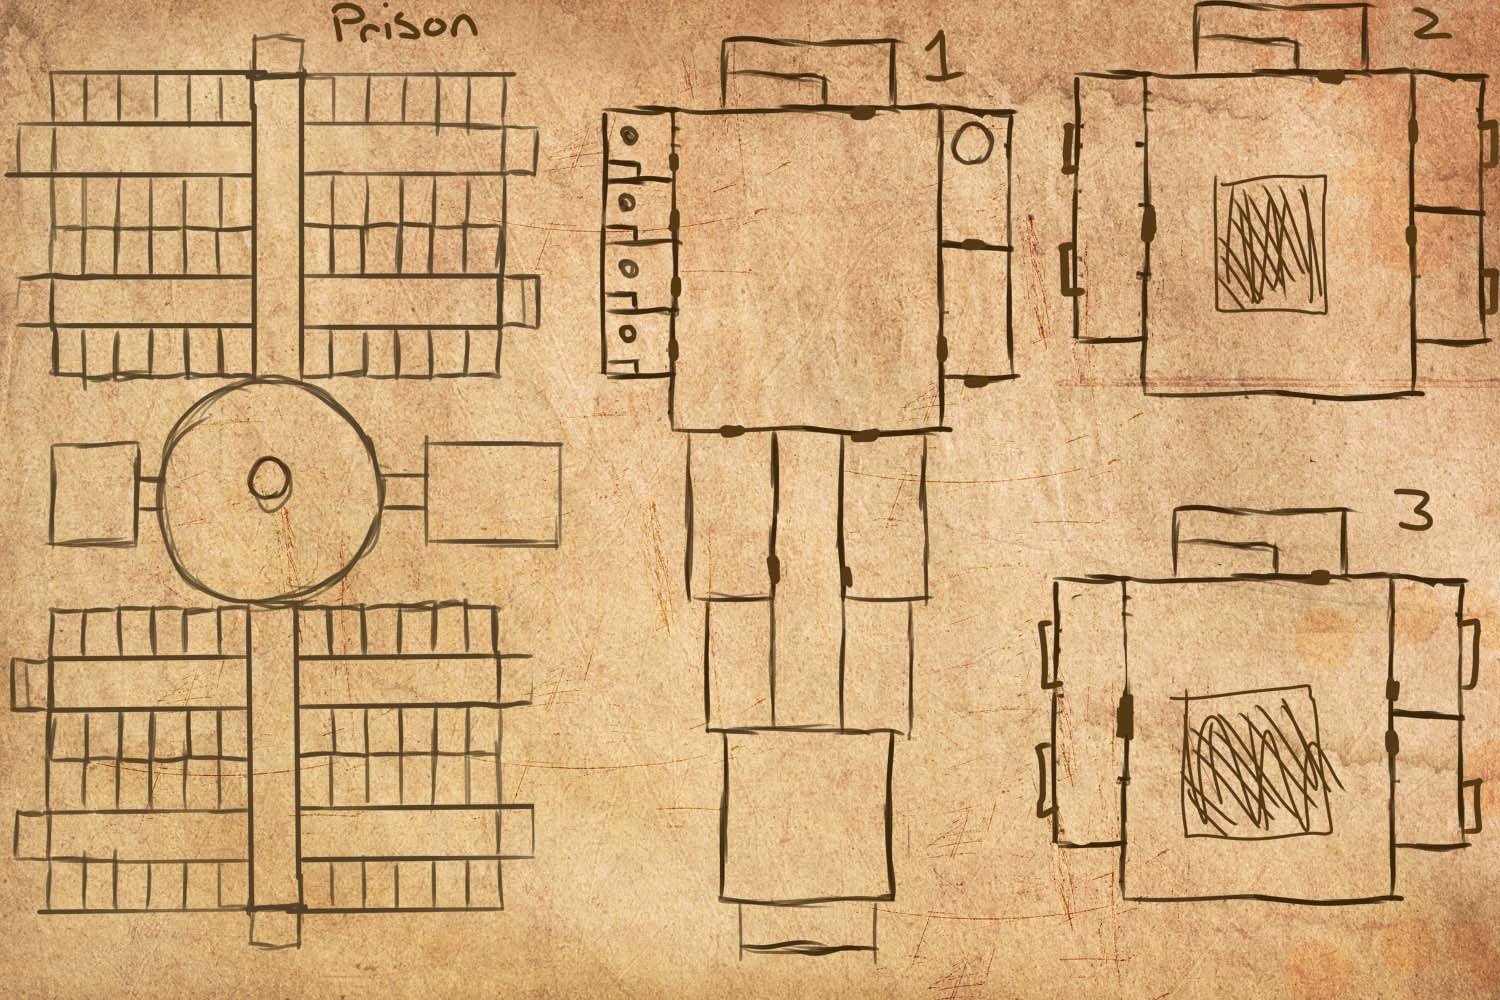 Prison
1
2
3